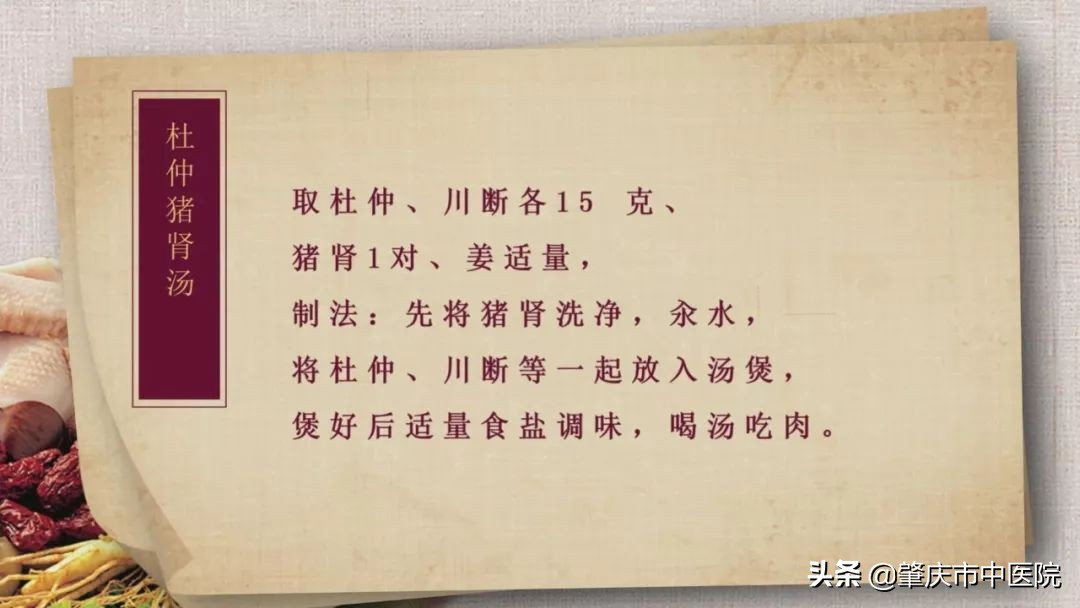 杜仲猪肾汤
取杜仲、川断各15 克、
猪肾1对、姜适量，
制法：先将猪肾洗净，汆水，
将杜仲、川断等一起放入汤煲，
煲好后适量食盐调味，喝汤吃肉。
头条 @肇庆市中医院